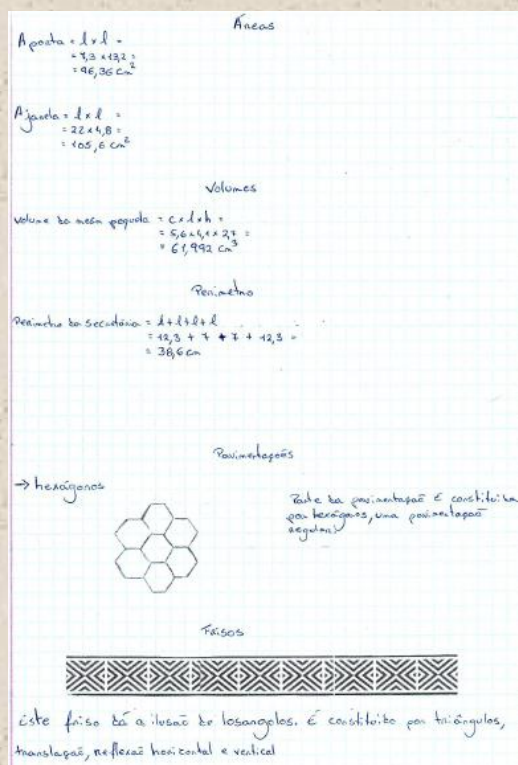 Áreas
A porta = l x l =
= 7,3 x 13,2 =
= 96,36 cm²
A janela = l x l =
= 22 x 4,8 =
= 105,6 cm²
Volumes
Volume da mesa pequena = c x l x h =
= 5,6 x 4,1 x 2,7 =
= 61,992 cm³
Perimetro
Perimetro da secretária = l + l + l + l
= 12,3 + 7 + 7 + 12,3 =
= 38,6 cm
Pavimentações
→ hexágonos
Parte da pavimentação é constituida
por hexágonos, uma pavimentação
regular
Frisos
Este friso dá a ilusão de losangolos. É constituito por triângulos,
translação, reflexão horizontal e vertical